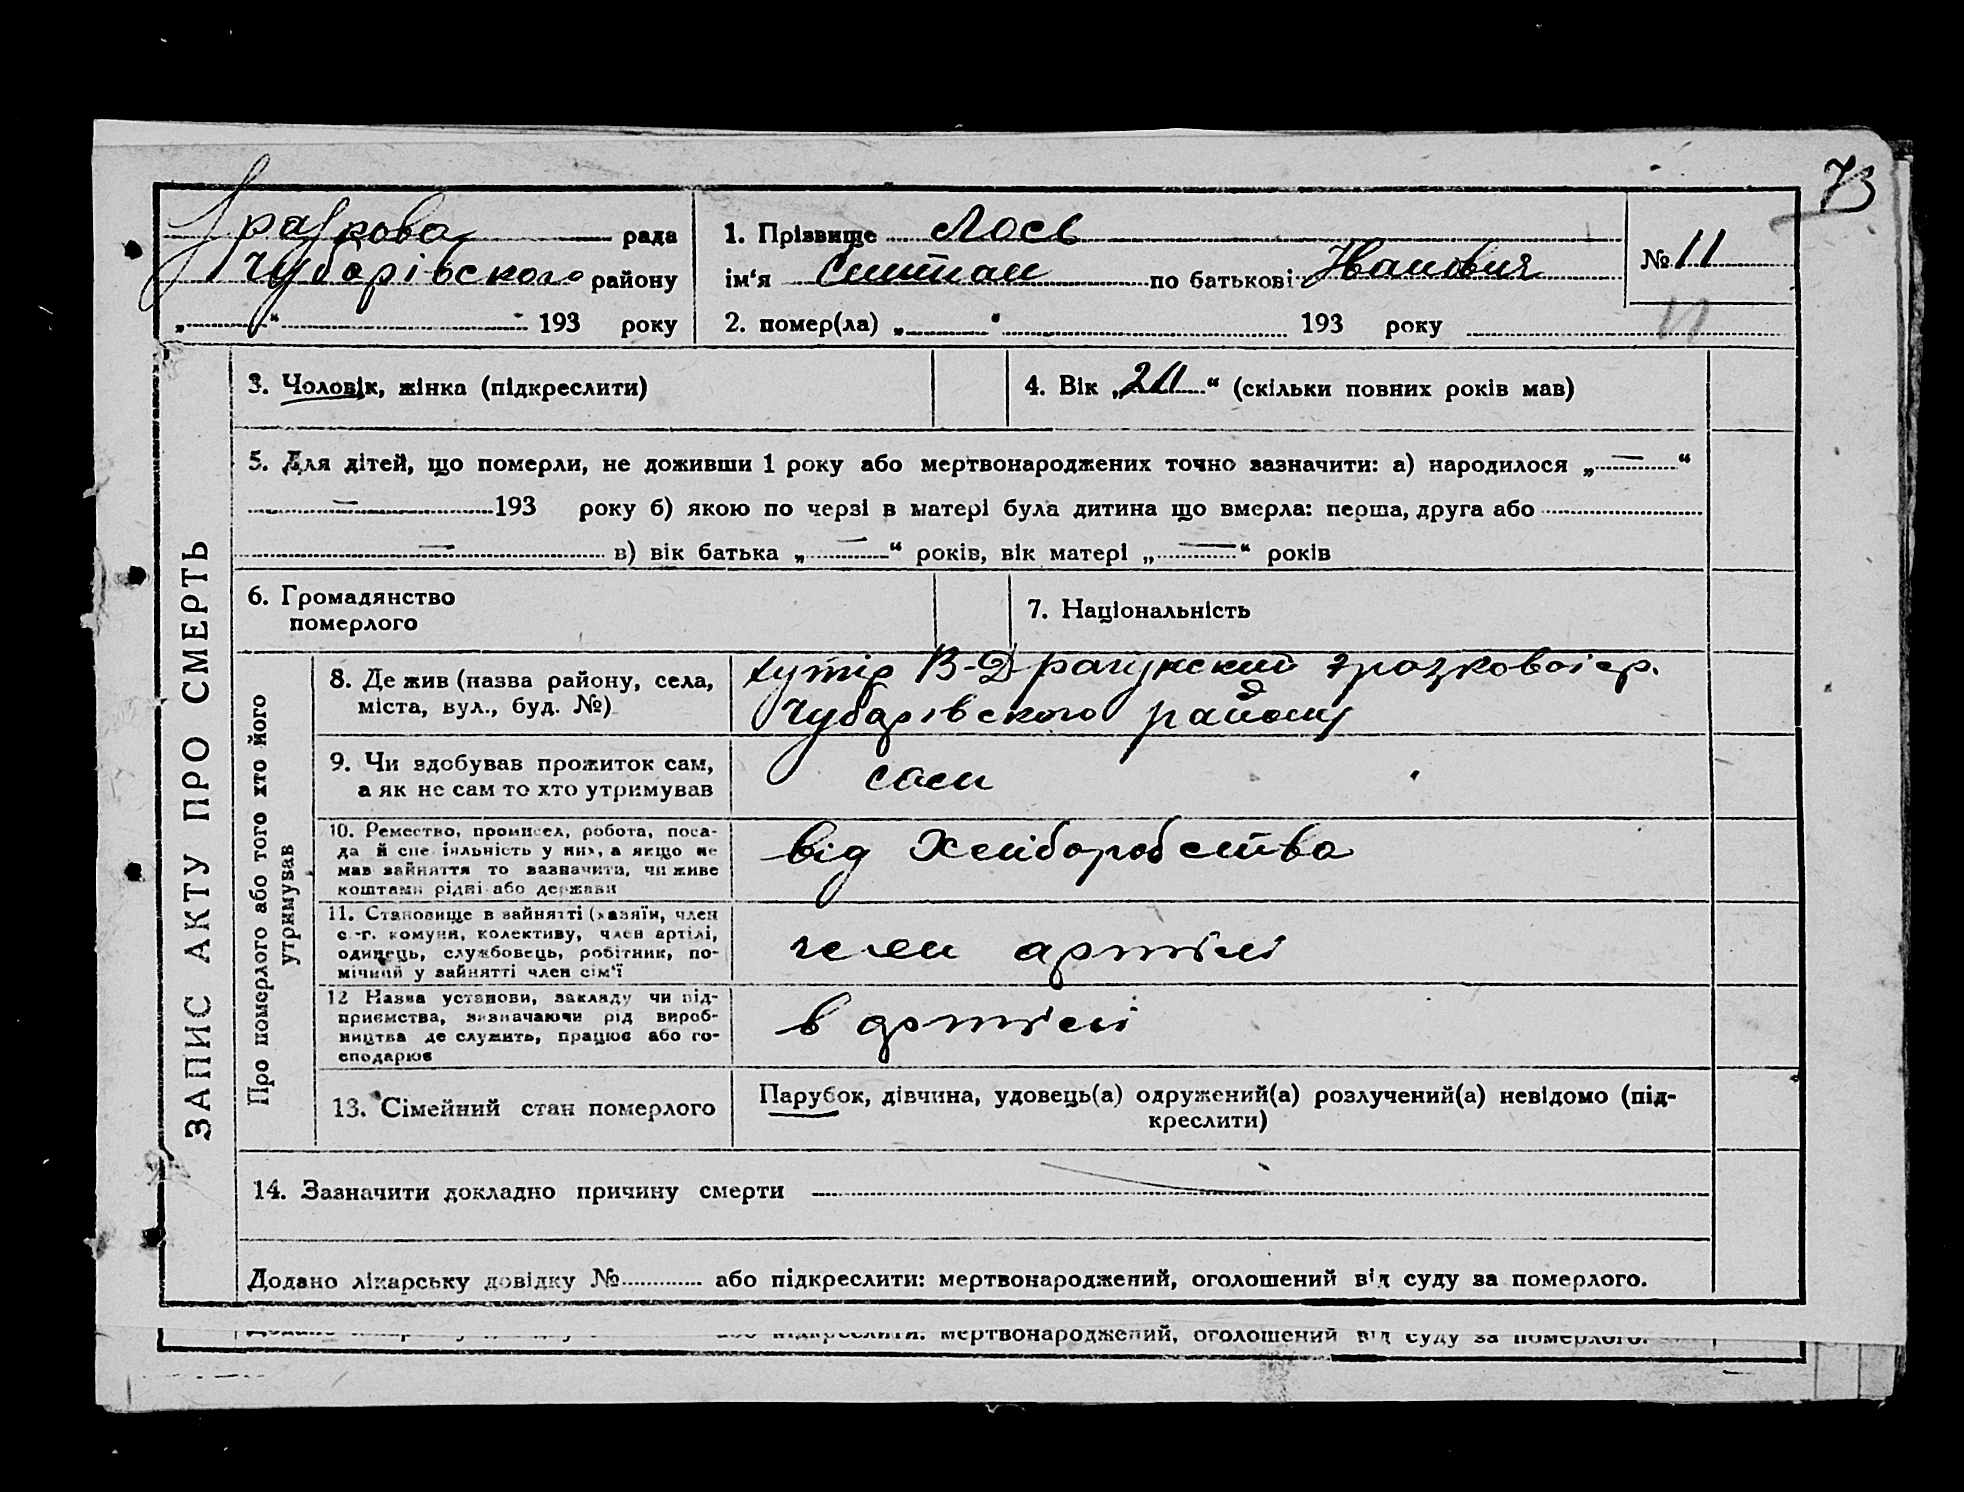 73
Грозкова рада
Чубарівского району
„ “ 193 року
1. Прізвище Лось
ім‘я Степан по батькові Иванович
№ 11
11
2. помер(ла) „ “ 193 року
ЗАПИС АКТУ ПРО СМЕРТЬ
3. Чоловік, жінка (підкреслити)
4. Вік „ “ (скільки повних років мав)
5. Для дітей, що померли, не доживши 1 року або мертвонароджених точно зазначити: а) народилося „—“
— 193 року б) якою по черзі в матері була дитина що вмерла: перша, друга або
— в) вік батька „—“ років, вік матері „—“ років
6. Громадянство
померлого
7. Національність
Про померлого або того хто його
утримував
8. Де жив (назва району, села,
міста, вул., буд. №)
хутір В-Драгунский грозковоі ср.
Чубарівского району
9. Чи здобував прожиток сам,
а як не сам то хто утримував
сам
10. Ремество, промисел, робота, поса-
да й спеціяльність у них, а якщо не
мав зайняття то зазначити, чи живе
коштами рідні або держави
від Хліборобства
11. Становище в зайнятті (хазяїн, член
с.-г. комуни, колективу, член артілі,
одинець, службовець, робітник, по-
мічний у зайнятті член сім'ї
член артілі
12 Назва установи, закладу чи під-
приємства, зазначаючи рід вироб-
ництва де служить, працює або го-
сподарює
в артілі
13. Сімейний стан померлого
Парубок, дівчина, удовець(а) одружений(а) розлучений(а) невідомо (під-
креслити)
14. Зазначити докладно причину смерти
Додано лікарську довідку № або підкреслити: мертвонароджений, оголошений від суду за померлого.
Додано лікарську довідку або підкреслити: мертвонароджений, оголошений від суду за померлого.